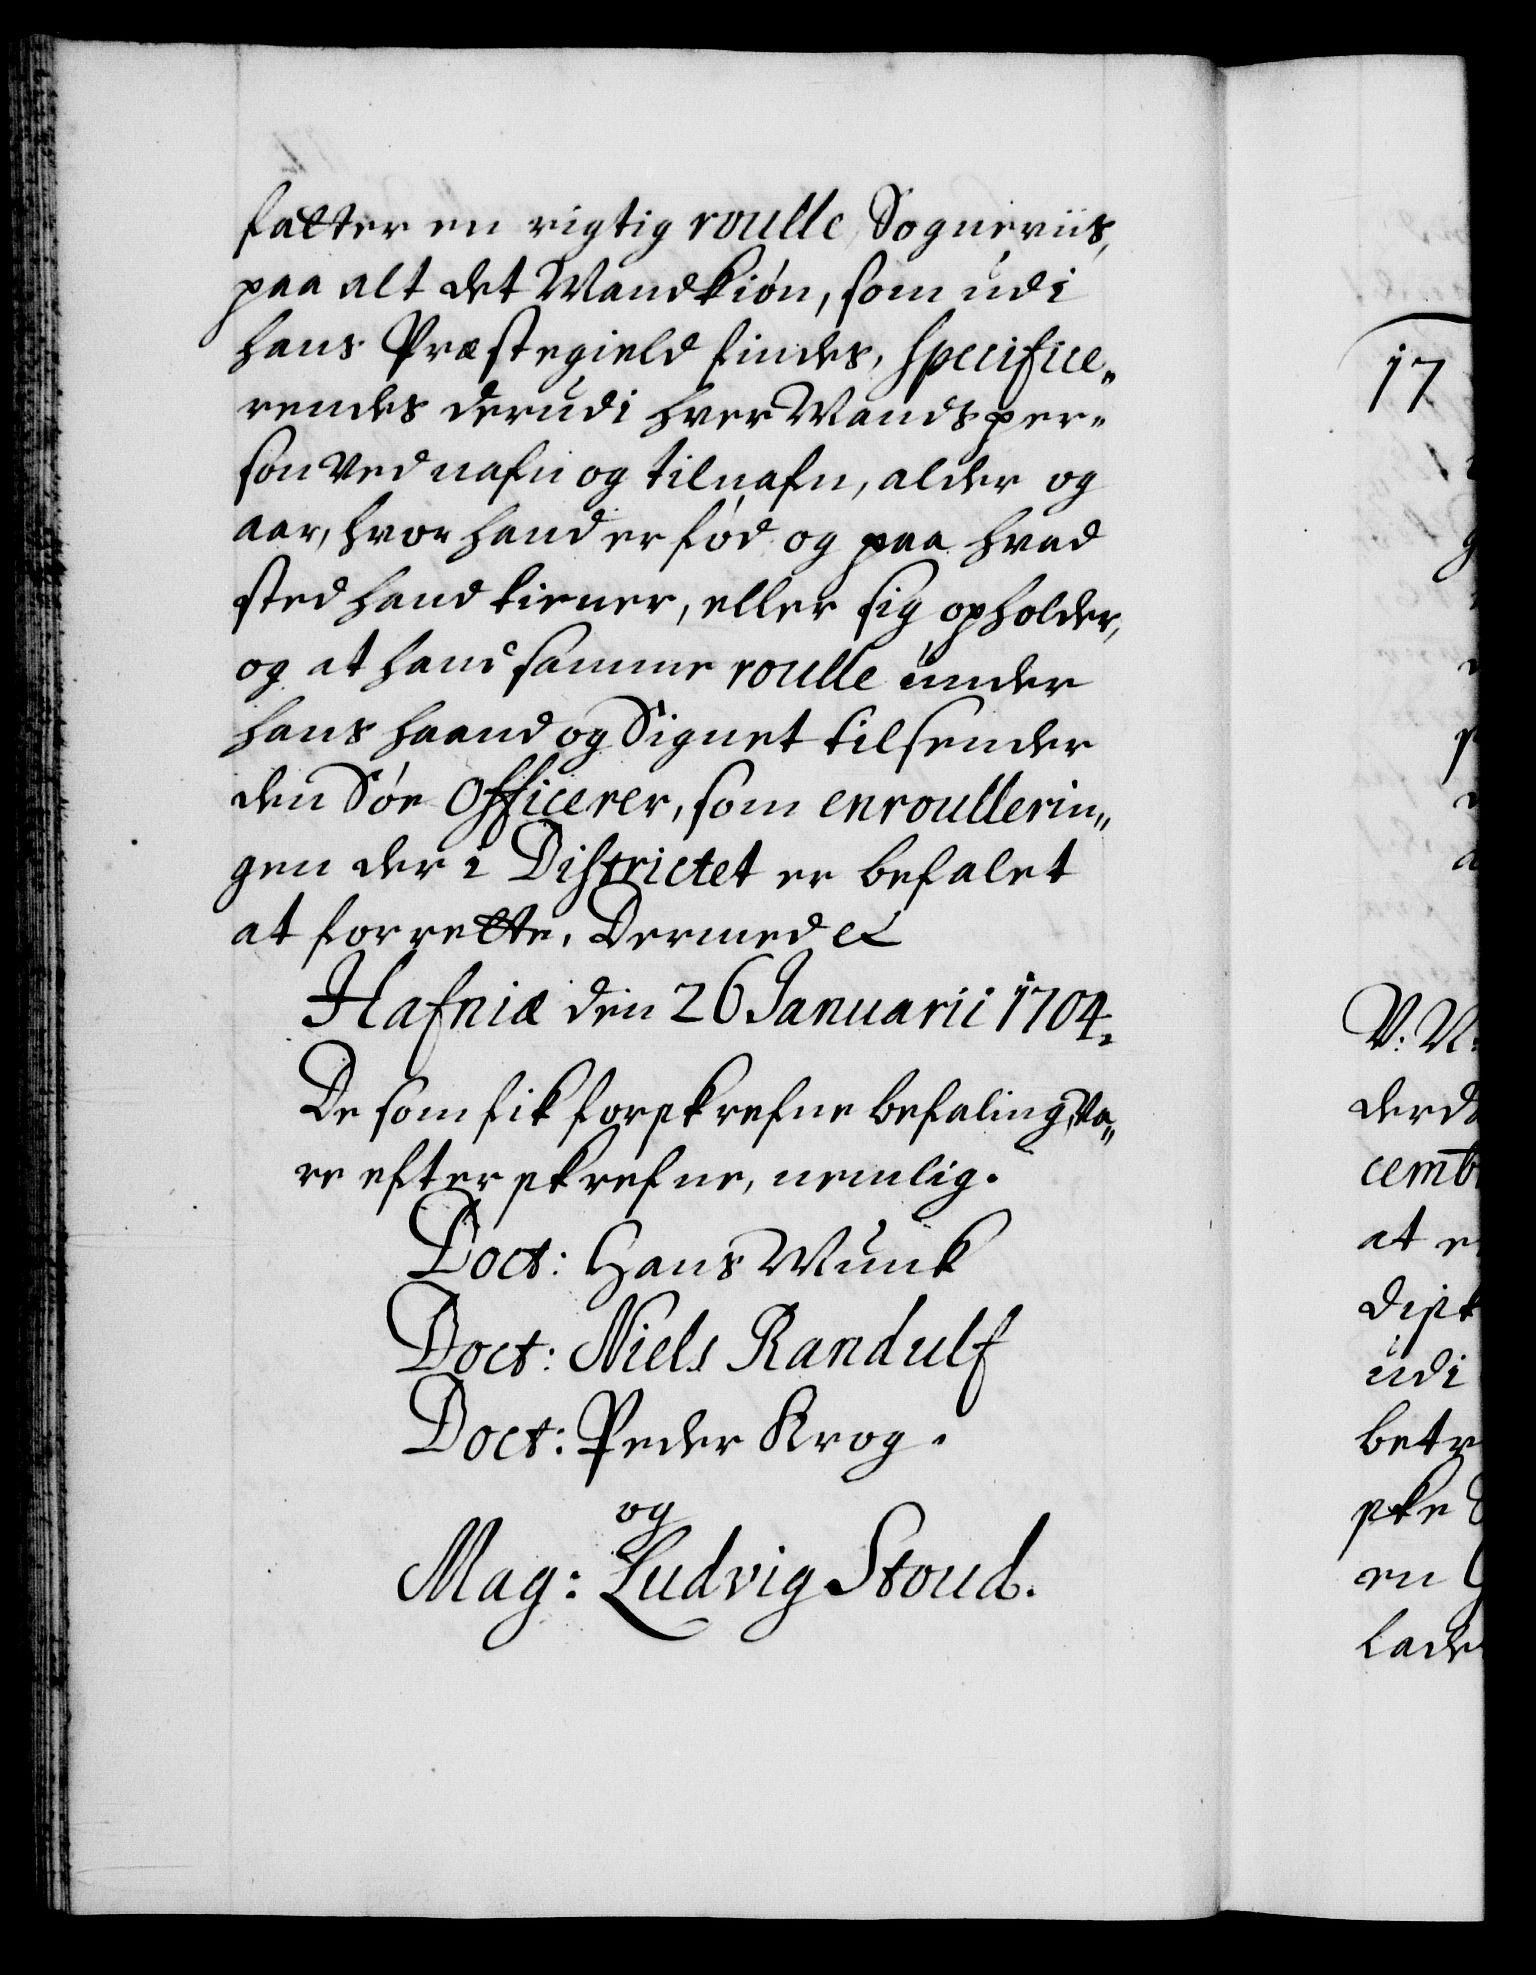 fatter en rigtig roulle, Sogneviis,
paa alt det Mandkiøn, som udi
hans Præstegield findes, specifice„
rendes derudi hver Mandsper„
son ved nafn og tilnafn, alder og
aar, hvor hand er fød og paa hvad
sted hand tiener, eller sig opholder,
og at hand samme roulle under
hans haand og Signet tilsender
den Søe Officerer, som enroullerin„
gen der i Districtet er befalet
at forrette. Dermed &
Hafniæ den 26 Januarii 1704.
De som fik forskrefne befaling, va„
re efterskrefne, nemlig.
Doct: Hans Munk
Doct: Niels Randulf
Doct: Peder Krog.
og
Mag: Ludvig Stoud.
17
V. N:
derd
cemb
at e
disk
udi
betr
ske
en
lade